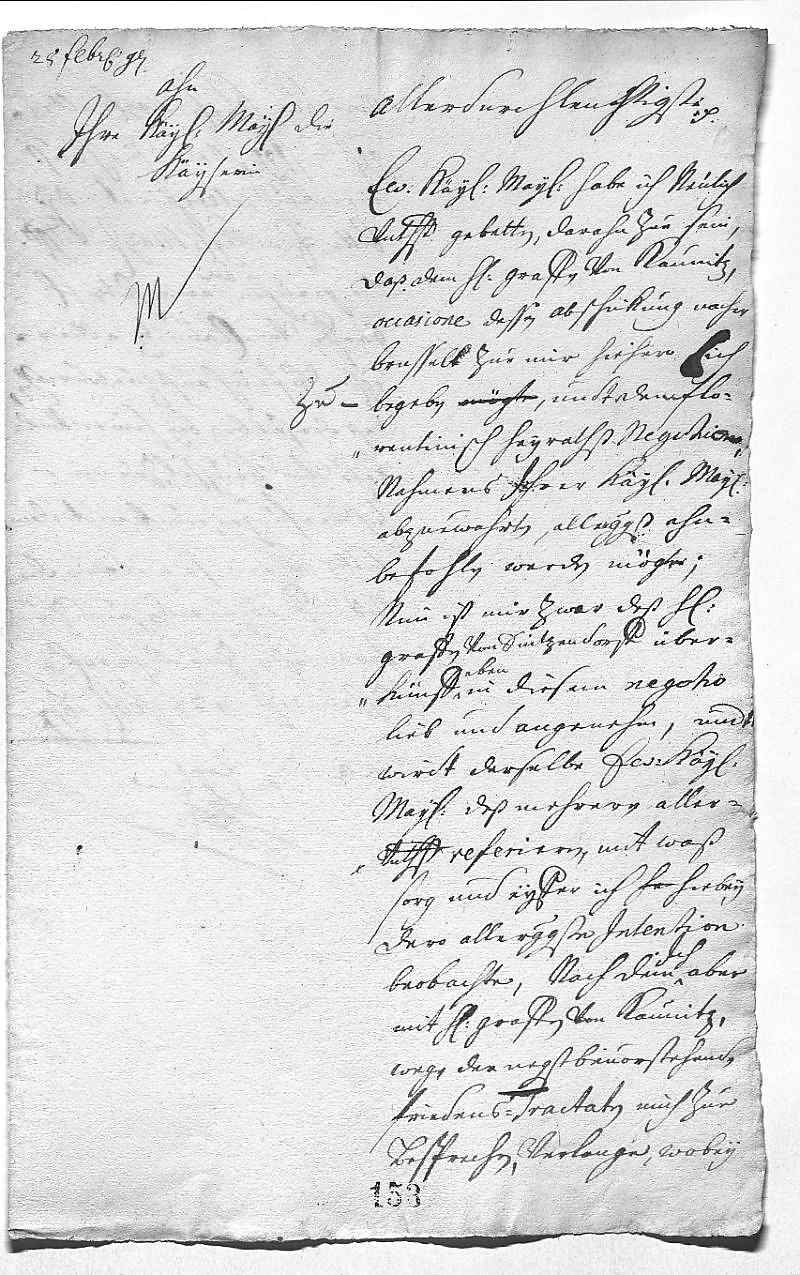 28 febr: 97.
ahn
Ihre Käyl: Mayl die
Käyserin
allerdurchleuchtigste p.
Ew. Käyl: Mayl: habe ich Neulich
gebetten, darahn zue sein,
daß dem H: graffen Von Kaunitz,
occasione dessen abschickung nacher
brussell zue mir hiehero sich
zue begeben mögte, undt dem flo-
rentinisch heyraths Negotium,
Nahmens Ihrer Käyl. Mayl:
abzuewahrten, allergst ahn-
befohlen werden mögte;
Nun ist mir zwar deß H:
graffen Von Sintzendorff über-
kunfft eben in diesem negotio
lieb und angenehm, undt
wirdt derselbe Ew: Käyl:
Mayl: deß mehreren aller-
referieren, mit waß
sorg und eyffer ich hiebey
dero allergste Intention
beobachte, Nach dem ich aber
mit H: graffen Von Kaunitz,
wegen der negstbeuorstehenden
friedens-Tractaten mich zue
besprechen, Verlange, wobey
153